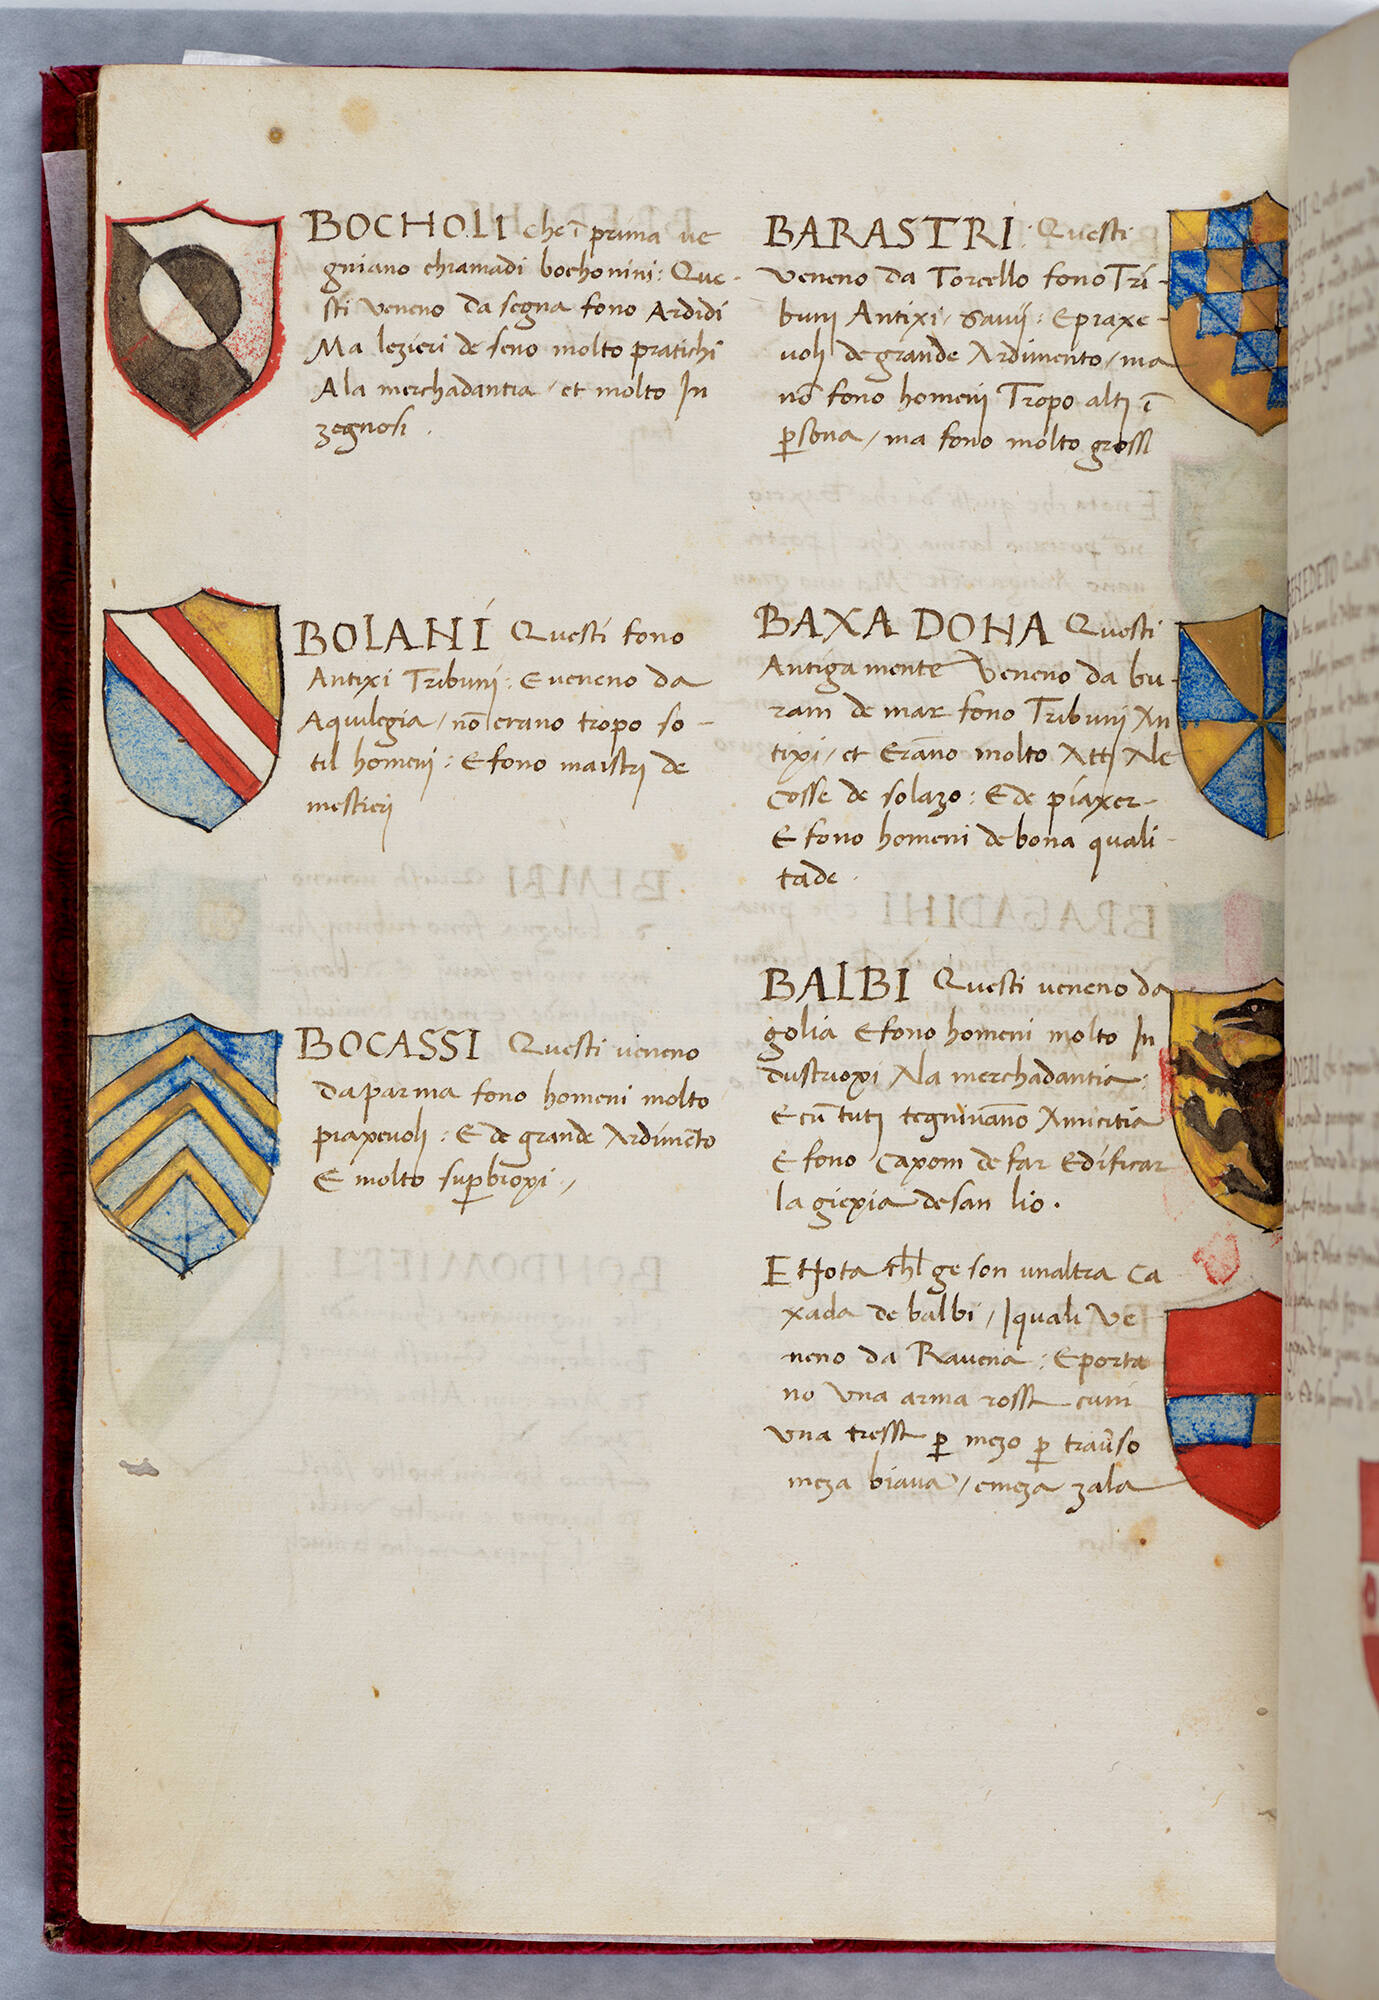 BOCHOLI che ī prima ve
gniano chiamadi bochonini: Que-
sti veneno da segna fono Ardidi
Ma lezieri de seno molto pratichi
A la merchadantia / et molto In
zegnosi .
BOLANI Questi fono
Antixi Tribunj : E veneno da
Aquilegia / nō erano tropo so-
til homenj : E fono maistrj de
mestierj
BOCASSI Questi veneno
da parma fono homeni molto
piaxevolj : E de grande Ardimēto
E molto supbioxi . /
BARASTRI : Questi
veneno da Torcello fono Tri-
bunj Antixi / Savij : E praxe-
volj de grande Ardimento / ma
nō fono homenj Tropo altj ī
psona / ma fono molto grossi
BAXA DONA Questi
Antigamente veneno da bu-
ram de mar fono Tribunj An
tixi / et Erāno molto Attj Ale
Cosse de solazo : E de piaxer-
E fono homeni de bona quali-
tade .
BALBI Questi veneno da
golia E fono homeni molto In
dustrioxi Ala merchadantia :
E cū tutj tegnivāno Amicitia
E fono Caxom de far Edificar
la giexia de san lio .
E Nota chl ge son unaltra Ca
xada de balbi / I quali Ve-
neno da Ravena : E porta
no una arma rossa cum
una tressa p mezo p trauso
meza biava / e meza zala